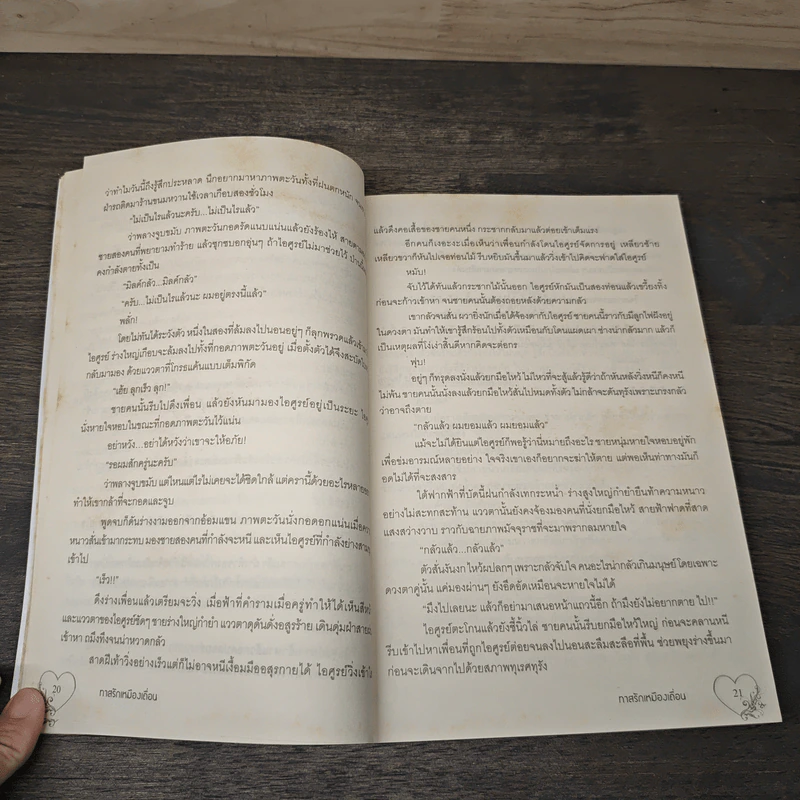 ว่าทำไมวันนี้ถึงรู้สึกประหลาด นึกอยากมาหาภาพตะวันทั้งที่ฝนตกหนัก
ฝ่ารถติดมาร้านขนมหวานใช้เวลาเกือบสองชั่วโมง
“ไม่เป็นไรแล้วนะครับ...ไม่เป็นไรแล้ว”
ว่าพลางจูบขมับ ภาพตะวันกอดรัดแนบแน่นแล้วยังร้องไห้
ชายสองคนที่พยายามทำร้าย แล้วซุกซบอกอุ่นๆ ถ้าไอศูรย์ไม่มาช่วยไว้
คงกำลังตายทั้งเป็น
“มิลค์กลัว...มิลค์กลัว”
“ครับ...ไม่เป็นไรแล้วนะ ผมอยู่ตรงนี้แล้ว”
พลั่ก!
โดยไม่ทันได้ระวังตัว หนึ่งในสองที่ล้มลงไปนอนอยู่ๆ ก็ลุกพรวดแล้ว
ไอศูรย์ ร่างใหญ่เกือบจะล้มลงไปทั้งที่กอดภาพตะวันอยู่ เมื่อตั้งตัวได้จึง
กลับมามอง ด้วยแววตาที่โกรธแค้นแบบเต็มพิกัด
“เฮ้ย ลุกเร็ว ลุก!”
ชายคนนั้นรีบไปดึงเพื่อน แล้วยังหันมามองไอศูรย์อยู่เป็นระยะ
นั่งหายใจหอบในขณะที่กอดภาพตะวันไว้แน่น
อย่าหวัง...อย่าได้หวังว่าเขาจะให้อภัย!
“รอผมสักครู่นะครับ”
ว่าพลางจูบขมับ แต่ไหนแต่ไรไม่เคยจะได้ชิดใกล้ แต่ครานี้ด้วยอะไรหลายอย่าง
ทำให้เขากล้าที่จะกอดและจูบ
พูดจบก็ดันร่างงามออกจากอ้อมแขน ภาพตะวันนั่งกอดอกแน่นเมื่อ
หนาวสั่นเข้ามากระทบ มองชายสองคนที่กำลังจะหนี และเห็นไอศูรย์ที่กำลังย่างสามขุม
เข้าไป
“เร็ว!!”
ดึงร่างเพื่อนแล้วเตรียมจะวิ่ง เมื่อฟ้าที่คำรามเมื่อครู่ทำให้ได้เห็น
และแววตาของไอศูรย์ชัดๆ ชายร่างใหญ่กำยำ แววตาดุดันดั่งอสูรร้าย เดินดุ่มฝ่าสายฝน
เข้าหา ถมึงทึงจนน่าหวาดกลัว
สาดฝีเท้าวิ่งอย่างเร็วแต่ก็ไม่อาจหนีเงื้อมมืออสุรกายได้ ไอศูรย์วิ่งเข้าไป
20
ทาสรักเหมืองเถื่อน
แล้วดึงคอเสื้อของชายคนหนึ่ง กระชากกลับมาแล้วต่อยเข้าเต็มแรง
อีกคนก็เงอะงะเมื่อเห็นว่าเพื่อนกำลังโดนไอศูรย์จัดการอยู่ เหลียวซ้าย
เหลียวขวาก็หันไปเจอท่อนไม้ รีบหยิบมันขึ้นมาแล้ววิ่งเข้าไปคิดจะฟาดใส่ไอศูรย์
หมับ!
จับไว้ได้ทันแล้วกระชากไม้นั้นออก ไอศูรย์หักมันเป็นสองท่อนแล้วเขวี้ยงทิ้ง
ก่อนจะก้าวเข้าหา จนชายคนนั้นต้องถอยหลังด้วยความกลัว
เขากลัวจนสั่น ผวายิ่งนักเมื่อได้จ้องตากับไอศูรย์ ชายคนนี้ราวกับมีลูกไฟฝังอยู่
ในดวงตา มันทำให้เขารู้สึกร้อนไปทั้งตัวเหมือนกับโดนแผดเผา ช่างน่ากลัวมาก แล้วก็
เป็นเหตุผลที่โง่เง่าสิ้นดีหากคิดจะต่อกร
ฟุบ!
อยู่ๆ ก็ทรุดลงนั่งแล้วยกมือไหว้ ไม่ไหวที่จะสู้แล้วรู้ดีว่าถ้าหันหลังวิ่งหนีก็คงหนี
ไม่พ้น ชายคนนั้นนั่งลงแล้วยกมือไหว้สั่นไปหมดทั้งตัว ไม่กล้าจะดันทุรังเพราะเกรงกลัว
ว่าอาจถึงตาย
“กลัวแล้ว ผมยอมแล้ว ผมยอมแล้ว”
แม้จะไม่ได้ยินแต่ไอศูรย์ก็พอรู้ว่านี่หมายถึงอะไร ชายหนุ่มหายใจหอบอยู่พัก
เพื่อข่มอารมณ์หลายอย่าง ใจจริงเขาเองก็อยากจะฆ่าให้ตาย แต่พอเห็นท่าทางมันก็
อดไม่ได้ที่จะสงสาร
ใต้ฟากฟ้าที่บัดนี้ฝนกำลังเทกระหน่ำ ร่างสูงใหญ่กำยำยืนท้าความหนาว
อย่างไม่สะทกสะท้าน แววตานั้นยังคงจ้องมองคนที่นั่งยกมือไหว้ สายฟ้าฟาดที่สาด
แสงสว่างวาบ ราวกับฉายภาพมัจจุราชที่จะมาพรากลมหายใจ
“กลัวแล้ว...กลัวแล้ว”
ตัวสั่นงันงก ไหว้ผปลกๆ เพราะกลัวจับใจ คนอะไรน่ากลัวเกินมนุษย์โดยเฉพาะ
ดวงตาคู่นั้น แค่มองผ่านๆ ยังอึดอัดเหมือนจะหายใจไม่ได้
“มึงไปเลยนะ แล้วก็อย่ามาเสนอหน้าแถวนี้อีก ถ้ามึงยังไม่อยากตาย ไป!!”
ไอศูรย์ตะโกนแล้วยังชี้นิ้วไล่ ชายคนนั้นรีบยกมือไหว้ใหญ่ ก่อนจะคลานหนี
รีบเข้าไปหาเพื่อนที่ถูกไอศูรย์ต่อยจนลงไปนอนสะลึมสะลือที่พื้น ช่วยพยุงร่างขึ้นมา
ก่อนจะเดินจากไปด้วยสภาพทุเรศทุรัง
ทาสรักเหมืองเถื่อน
21